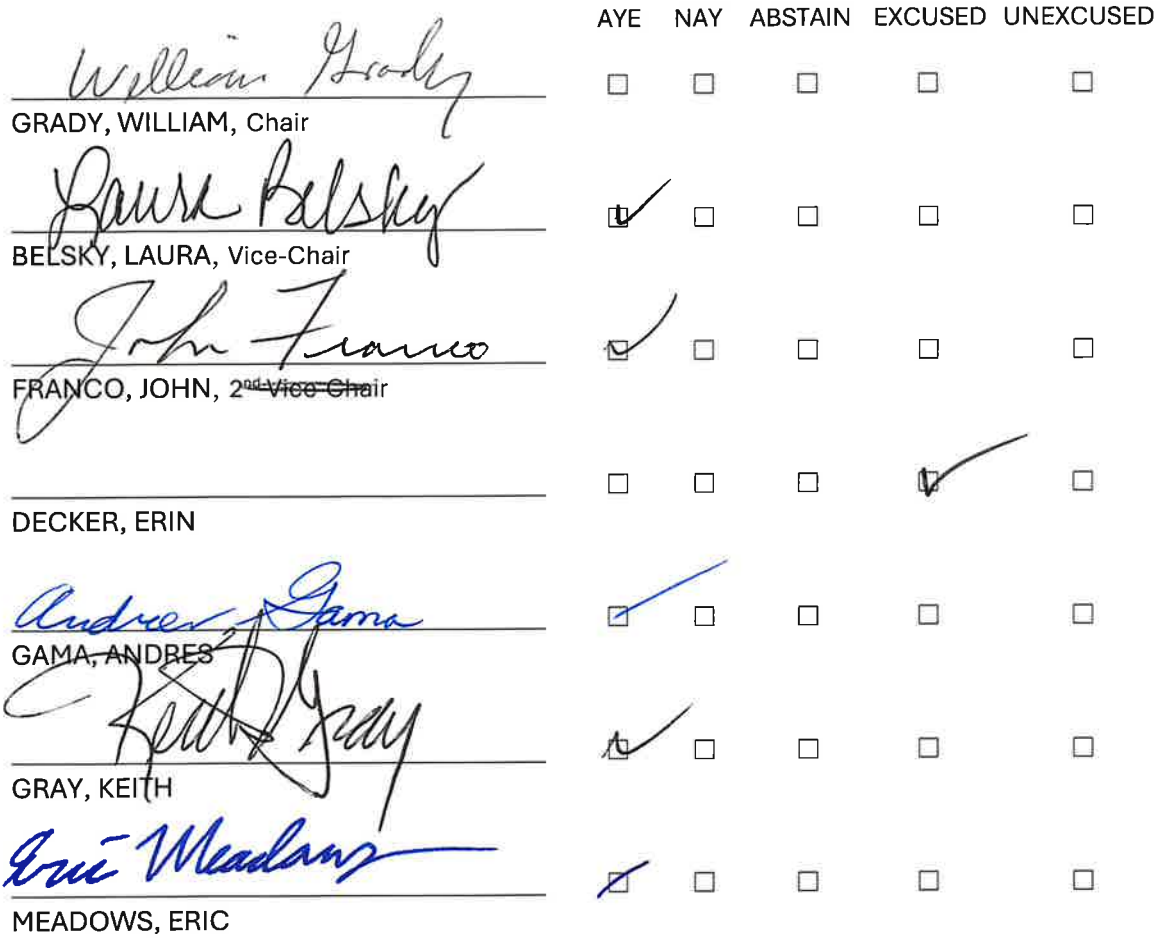 AYE NAY ABSTAIN EXCUSED UNEXCUSED
William Grady
GRADY, WILLIAM, Chair
Laura Belsky
BELSKY, LAURA, Vice-Chair
John Franco
FRANCO, JOHN, 2nd Vice-Chair
DECKER, ERIN
Andres Gama
GAMA, ANDRES
Keith Gray
GRAY, KEITH
Eric Meadows
MEADOWS, ERIC